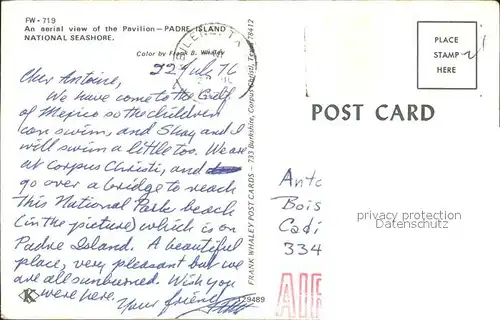 FW - 719
An aerial view of the Pavilion — PADRE ISLAND
NATIONAL SEASHORE.
Color by Frank B. Whaley
22 July 76
Cher Antoine,
We have come to the Gulf
of Mexico so the children
can swim, and Shay and I
will swim a little too. We are
at Corpus Christi, and
go over a bridge to reach
this National Park beach
(in the picture) which is on
Padre Island. A beautiful
place, very pleasant but we
are all sunburned. Wish you
were here. Your friend
K
FRANK WHALEY POST CARDS - 733 Burkshire, Corpus Christi, Texas 78412
129489
PLACE
STAMP
HERE
POST CARD
Anto
Bois
Cadi
334
privacy protection
Datenschutz
AIR